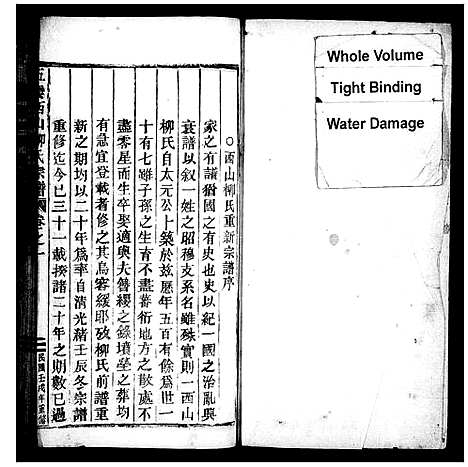 ○西山柳氏重新宗譜序
家之有譜猶國之有史也史以紀一國之治亂興
衰譜以叙一姓之昭穆支系名雖殊實則一西山
柳氏自太元公卜築於兹歷年五百有餘爲世一
十有七雖子孫之生育不盡蕃衍地方之散處不
盡零星而生卒娶適與夫簪纓之錄墳塋之葬均
有急宜登載者修之其烏容緩耶攷柳氏前譜重
新之期均以二十年爲率自清光緒壬辰冬宗譜
重修迄今已三十一載揆諸二十年之期數已過
西山柳氏宗譜 卷之一
民國壬戌年重修
Whole Volume
Tight Binding
Water Damage